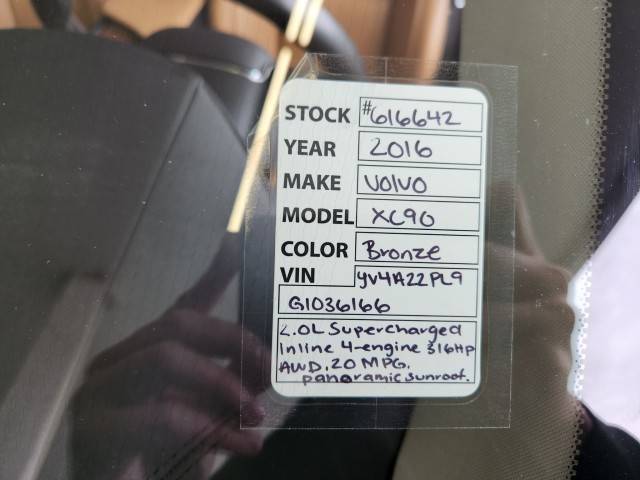 STOCK #616642
YEAR 2016
MAKE VOLVO
MODEL XC90
COLOR Bronze
VIN YV4A22PL9
G1036166
2.0L Supercharged
Inline 4-engine 316HP
AWD. 20 MPG.
panoramic sunroof.